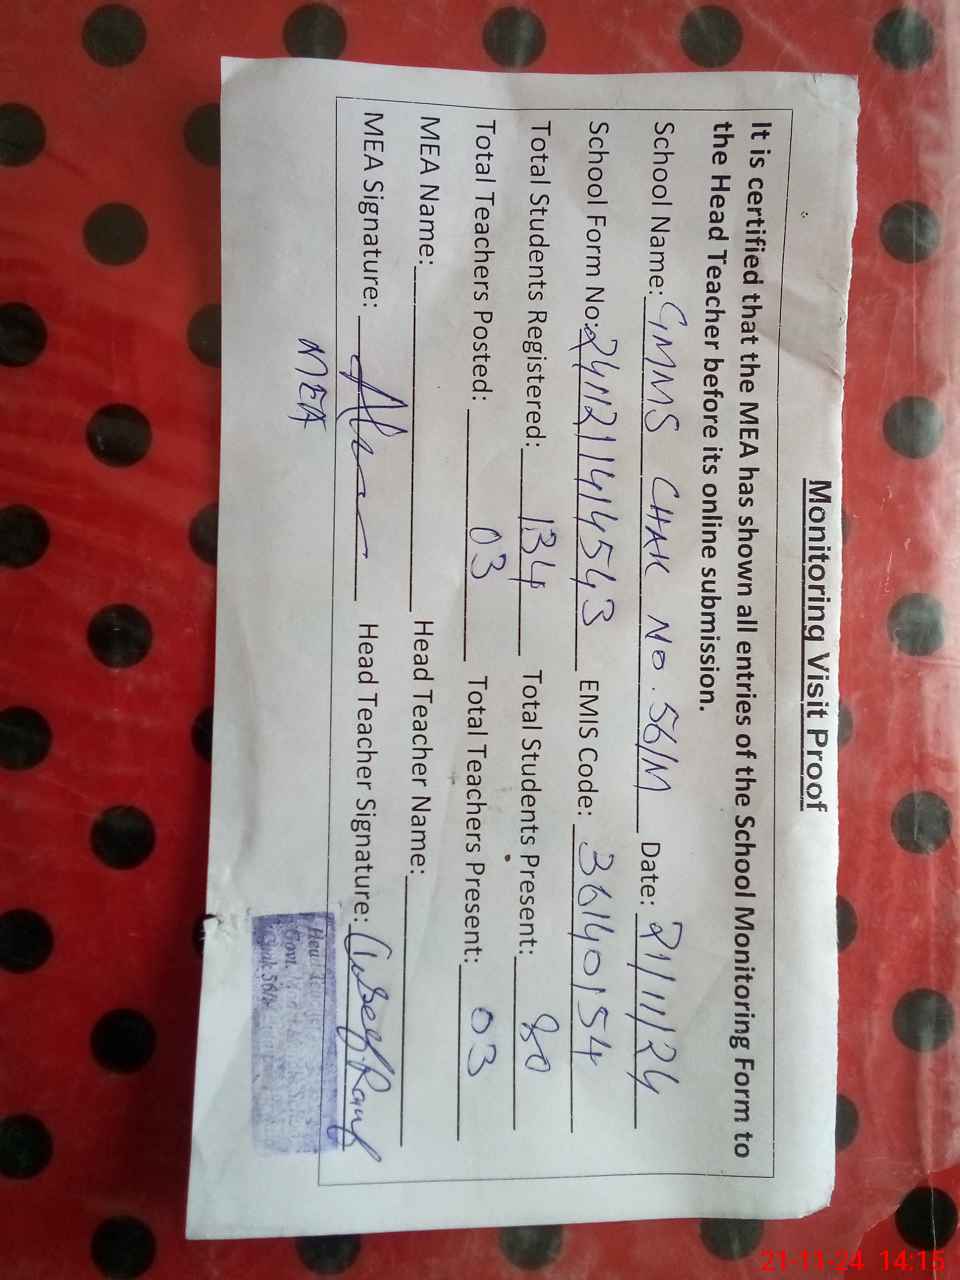 Monitoring Visit Proof
It is certified that the MEA has shown all entries of the School Monitoring Form to
the Head Teacher before its online submission.
School Name: GMMS CHAK NO. 56/M Date: 21/11/24
School Form No: 2411211414543 EMIS Code: 36140154
Total Students Registered: 134 Total Students Present: 80
Total Teachers Posted: 03 Total Teachers Present: 03
MEA Name: Head Teacher Name:
MEA Signature: Head Teacher Signature:
MEA
21-11-24 14:15